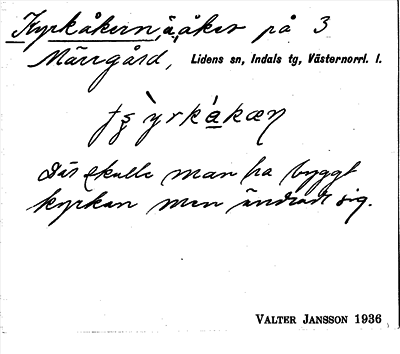 Kyrkåkern, å, åker på 3
Märrgård, Lidens sn, Indals tg, Västernorrl. l.
Där skulle man ha byggt
kyrkan men ändrade sig.
VALTER JANSSON 1936